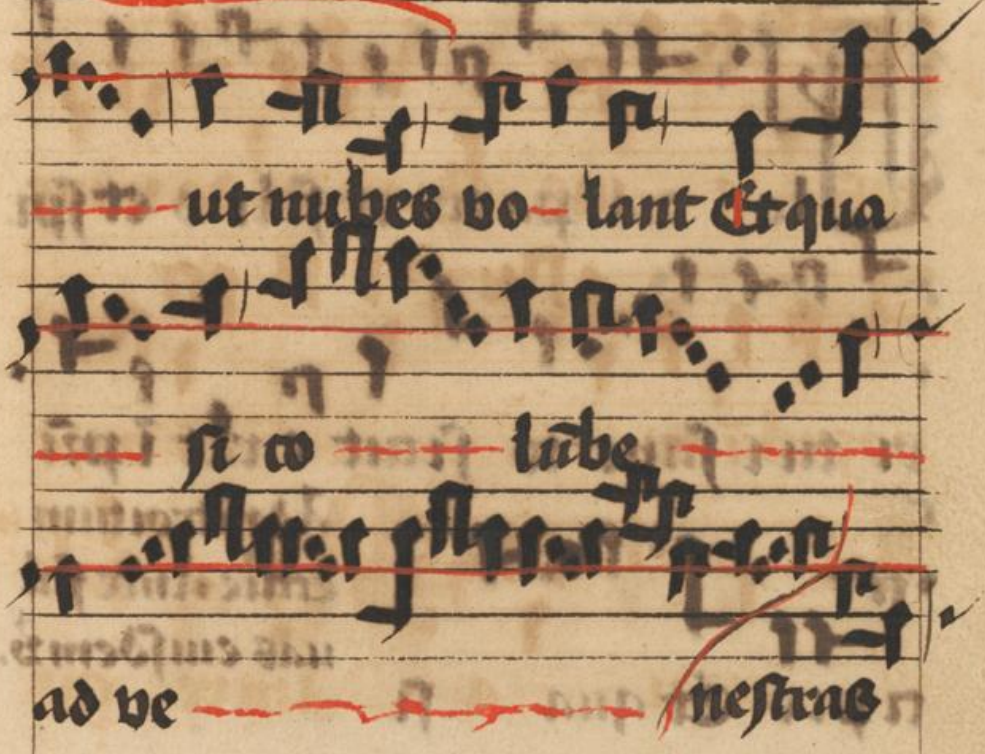 ut nubes vo lant Et qua
si co lūbe
ad ve nestras